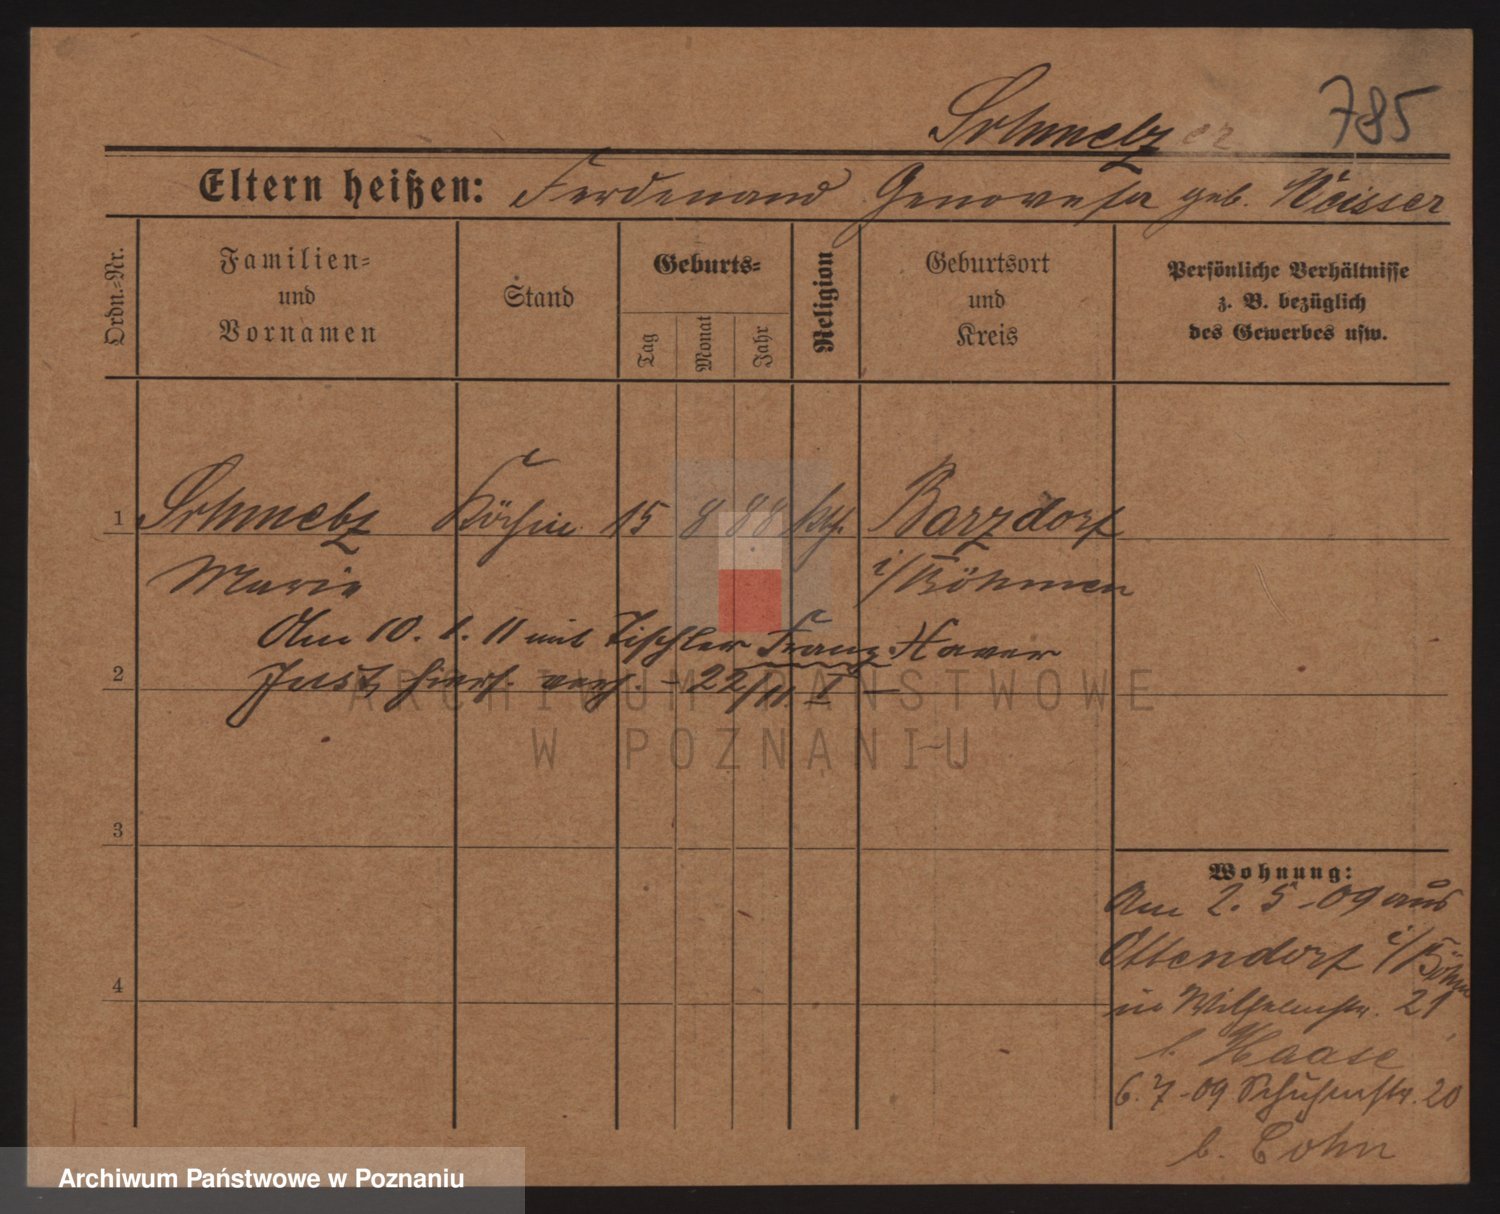 Schmelz
785
Eltern heißen: Ferdenand Genovefa geb.
Ordn.-Nr.
Familien-
und
Vornamen
Stand
Geburts-
Tag
Monat
Jahr
Religion
Geburtsort
und
Kreis
Persönliche Verhältnisse
z. B. bezüglich
des Gewerbes usw.
1 Schmelz Köchin 15 8 88 kth. Barzdorf
Marie i/Böhmen
Am 10. 1. 11 mit Tischler Franz Xaver
2 hierf. verh. - 22/11. I -
3
4
Wohnung:
Am 2. 5 - 09 aus
Ottendorf i/Böhm
in Wilhelmstr. 21
b. Haase
6. 7 - 09 Schützenstr. 20
b. Cohn
ARCHIWUM PAŃSTWOWE
W POZNANIU
Archiwum Państwowe w Poznaniu